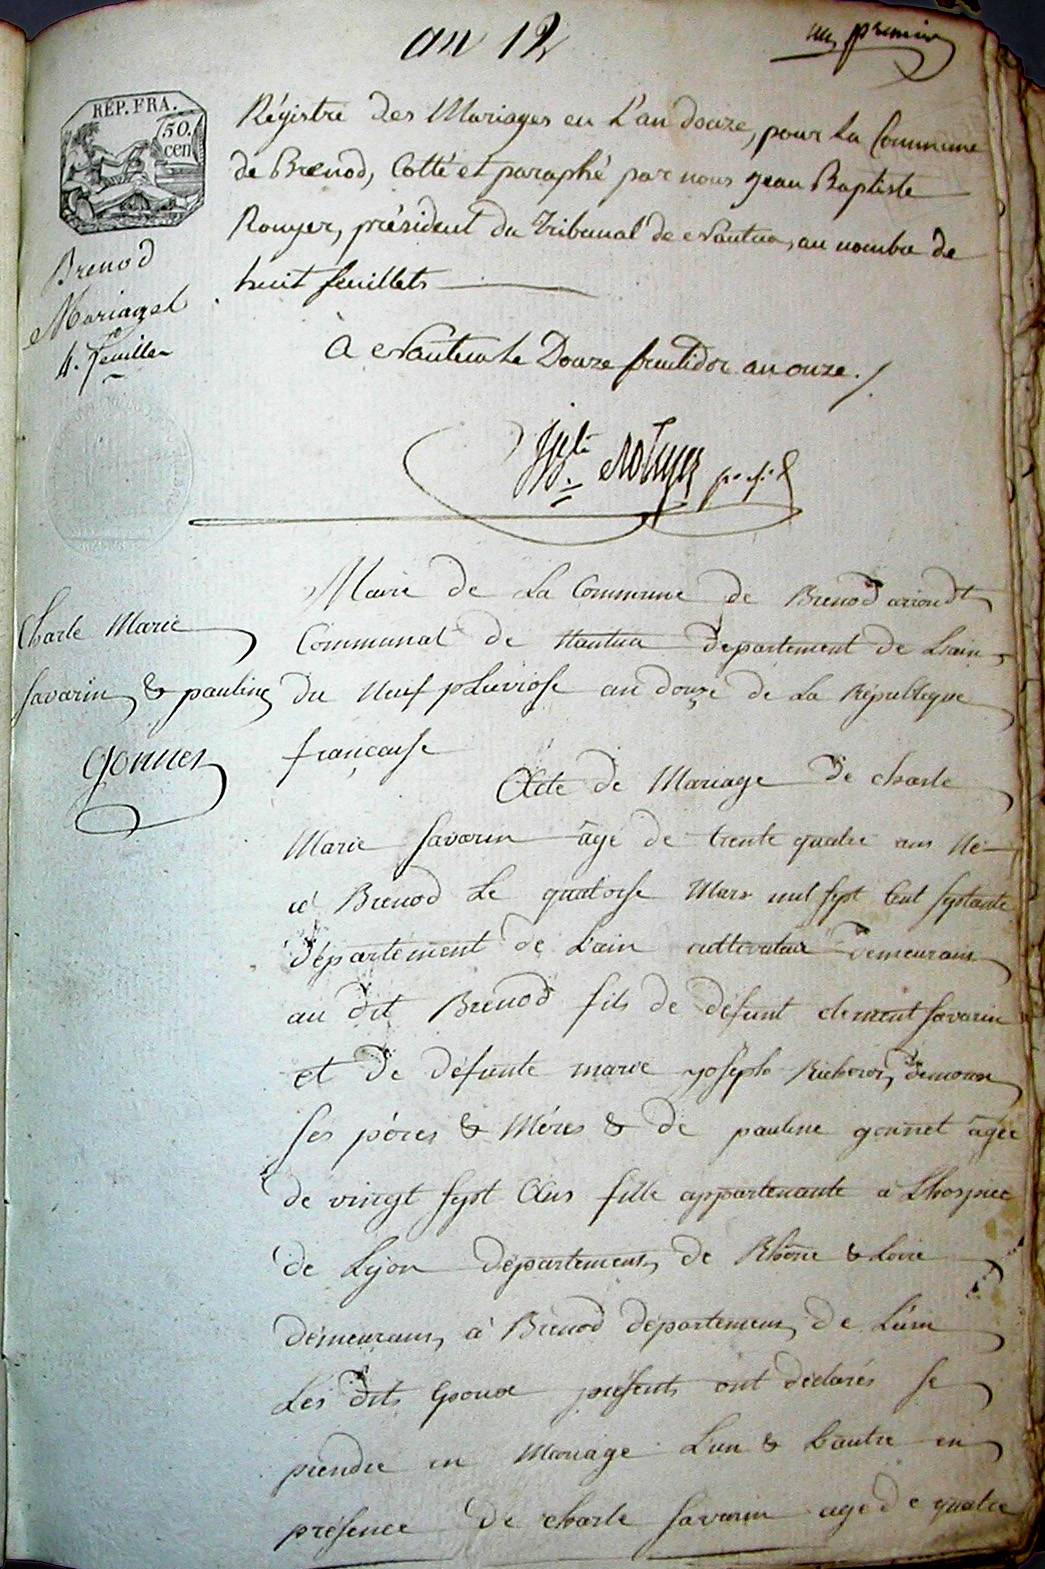 an 12
un premier
REP. FRA.
50.
cen
Régistre des Mariages en L'an douze, pour La Commune
de Brenod, Cotté et paraphé par nous Jean Baptiste
Rouyer, président du Tribunal de Nantua, au nombre de
huit feuillets
Brenod
Mariages
4. feuilles
A Nantua le Douze fructidor an onze.
Maire de La Commune de Brenod arrondt
Communal de Nantua departement de L'ain
du Neuf pluviose an douze de La République
francaise
Charle Marie
Savarin & pauline
gonnet
Acte de Mariage de charle
Marie Savarin âgé de trente quatre ans Né
a Brenod Le quatorse Mars mil sept Cent septante
département de L'ain cultivateur demeurans
au dit Brenod fils de défunt clement Savarin
et de défunte marie joseph
ses péres & Méres & de pauline gonnet âgée
de vingt sept Ans fille appartenante a L'hospice
de Lyon département de Rhône & Loire
démeurans à Brenod département de L'ain
Les dits Epoux présents ont déclarés se
prendre en Mariage L'un & L'autre en
présence de charle Savarin age de quatre